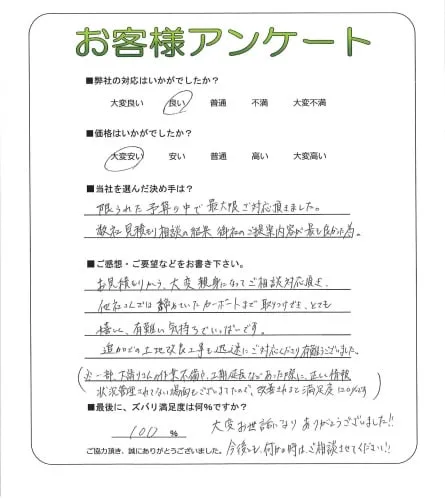 お客様アンケート
■弊社の対応はいかがでしたか？
大変良い 良い 普通 不満 大変不満
■価格はいかがでしたか？
大変安い 安い 普通 高い 大変高い
■当社を選んだ決め手は？
限られた予算の中で最大限ご対応頂きました。
数社見積もり相談の結果 御社のご提案内容が最も良かった為。
■ご感想・ご要望などをお書き下さい。
お見積もりから、大変親身になってご相談対応頂き、
他社さんでは諦めていたカーポートまで取りつけでき、とても
嬉しく、有難い気持ちでいっぱいです。
追加での土地改良工事も迅速にご対応くださり有難うございました。
※一部、下請けさんの作業不備や、工期延長などあった際に、正しい情報
状況管理されてない場面もございましたので、改善されると満足度120%です
■最後に、ズバリ満足度は何%ですか？
100 %
大変お世話になりありがとうございました!!
ご協力頂き、誠にありがとうございました。
今後とも、何かの時は、ご相談させてください!!